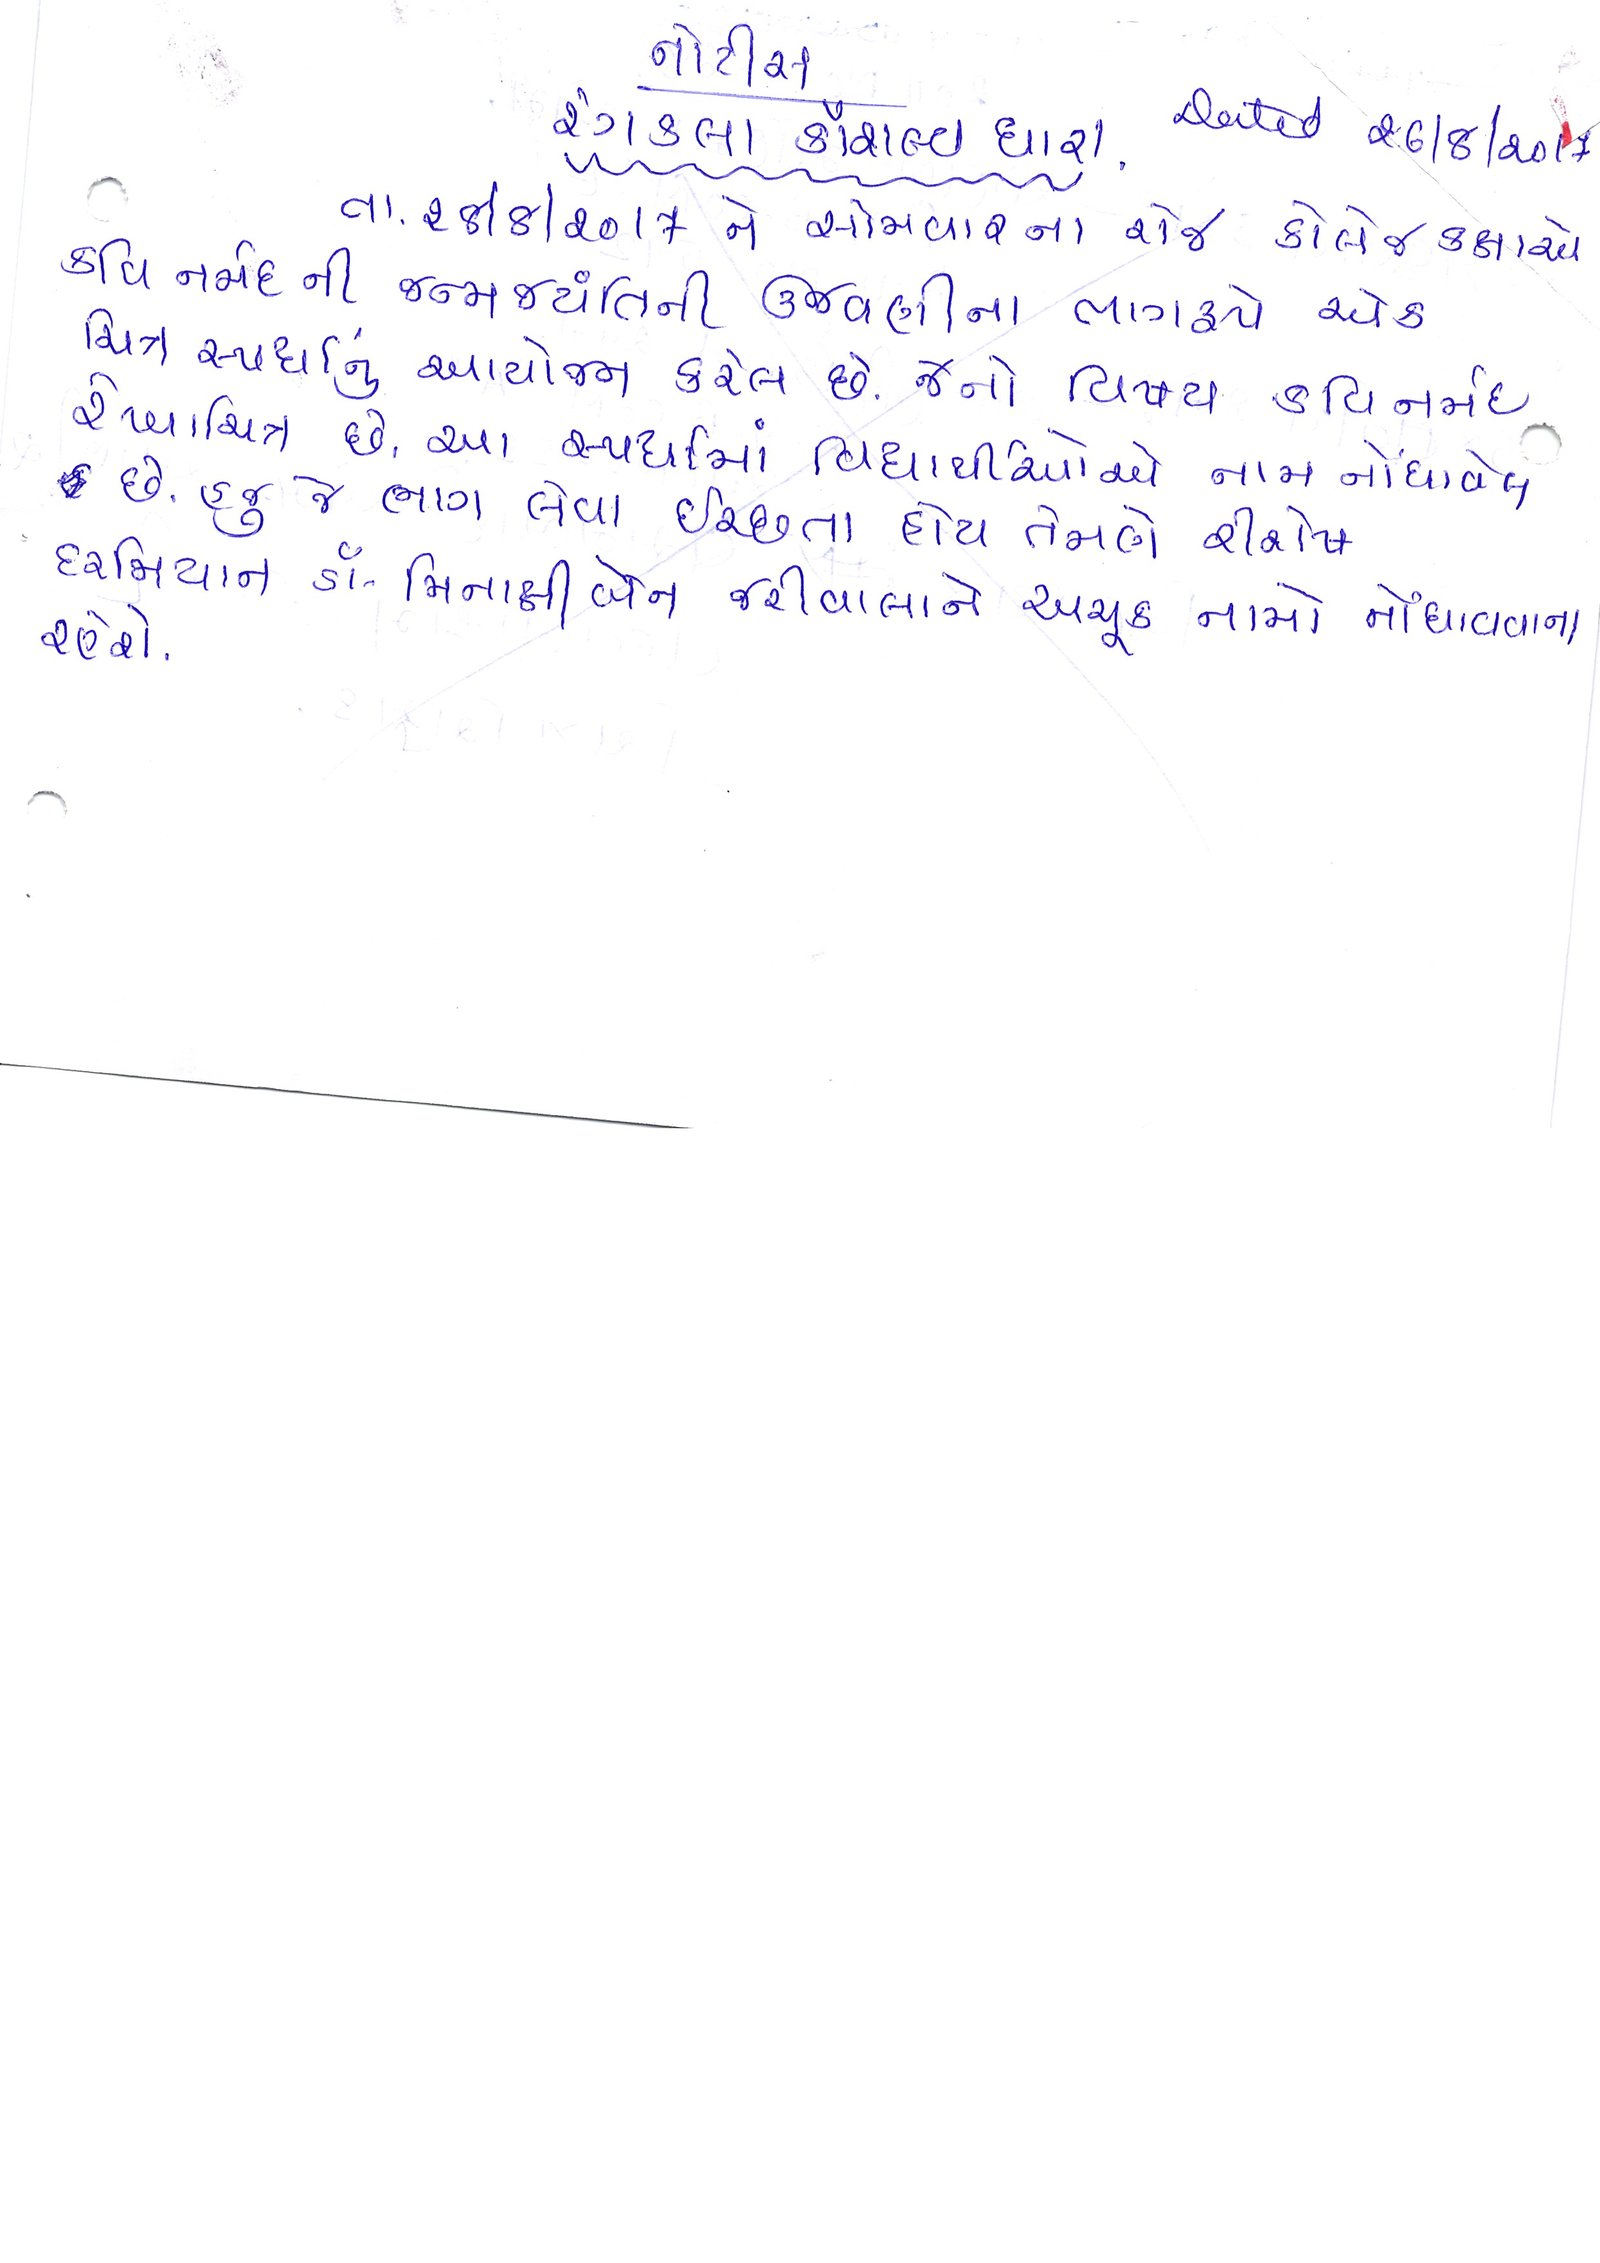 નોટીસ
રંગકલા કૌશલ્ય ધારા. Dated ૨૬/૮/૨૦૧૭
તા. ૨૮/૮/૨૦૧૭ ને સોમવારના રોજ કોલેજ કક્ષાએ
કવિ નર્મદ ની જન્મજયંતિની ઉજવણીના ભાગરૂપે એક
ચિત્ર સ્પર્ધાનું આયોજન કરેલ છે. જેનો વિષય કવિ નર્મદ
રેખાચિત્ર છે. આ સ્પર્ધામાં વિદ્યાર્થીઓએ નામ નોંધાવેલ
છે. હજુ જે ભાગ લેવા ઈચ્છતા હોય તેમણે રીશેષ
દરમિયાન ડૉ. મિનાક્ષીબેન જરીવાલાને અચૂક નામો નોંધાવવાના
રહેશે.